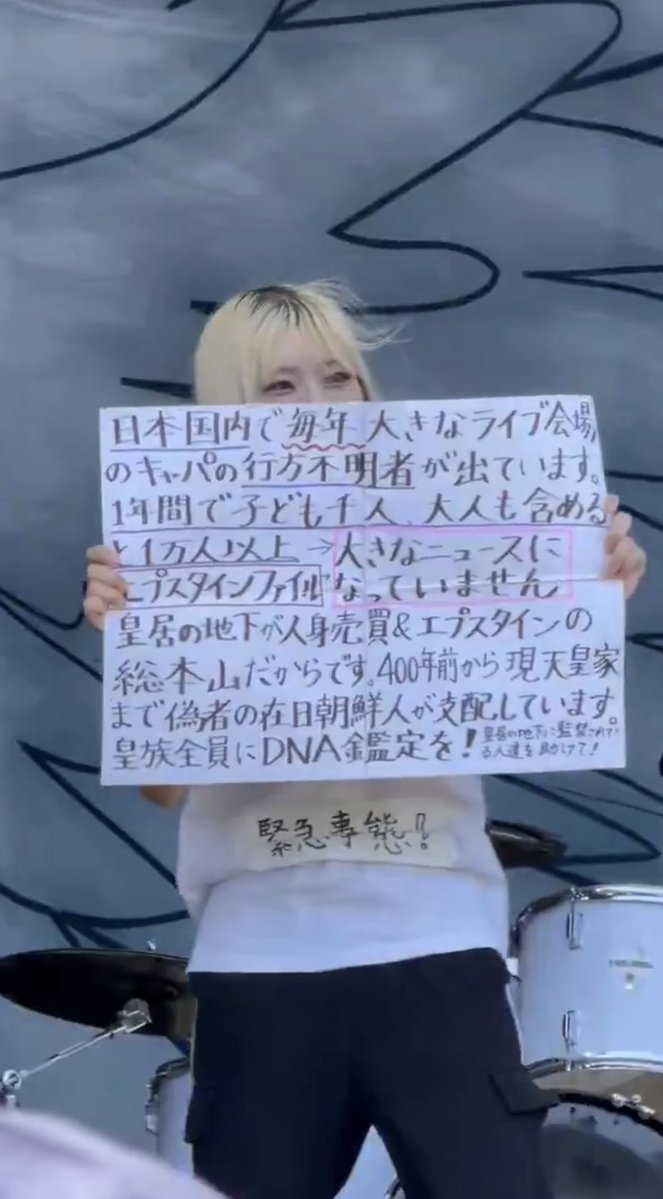 日本国内で毎年大きなライブ会場
のキャパの行方不明者が出ています。
1年間で子ども千人、大人も含める
と1万人以上→大きなニュースに
エプスタインファイル なっていません
皇居の地下が人身売買&エプスタインの
総本山だからです。400年前から現天皇家
まで偽者の在日朝鮮人が支配しています。
皇族全員にDNA鑑定を!
皇居の地下に監禁されてい
る人達を助けて!
緊急事態!